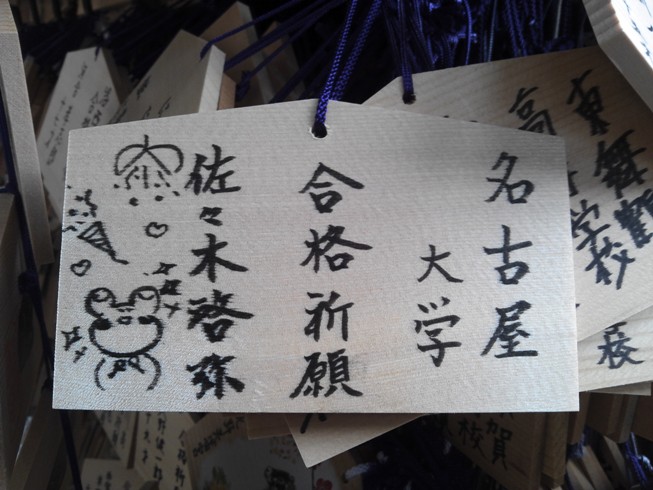 名古屋
大学
合格祈願
佐々木啓弥
東舞鶴
高
学校
賀
枝